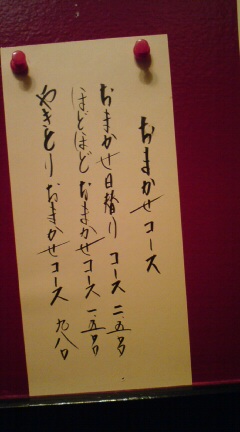 おまかせコース
おまかせ日替り コース 二、五〇〇
ほどほど おまかせコース 一、五〇〇
やきとり おまかせコース 九八〇